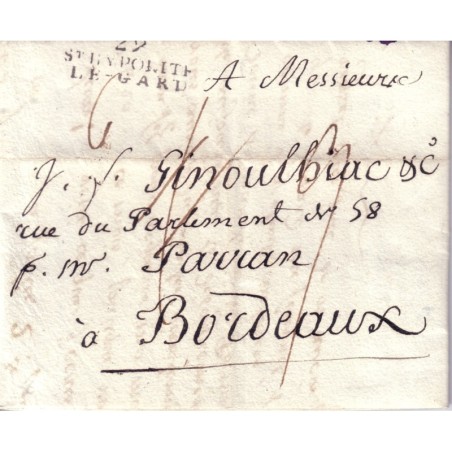 29
ST HYPOLITE
LE-GARD
A Messieurs
J. S. Ginoulhiac & Cº
rue du Parlement Nº 58
p. m. Parran
à Bordeaux